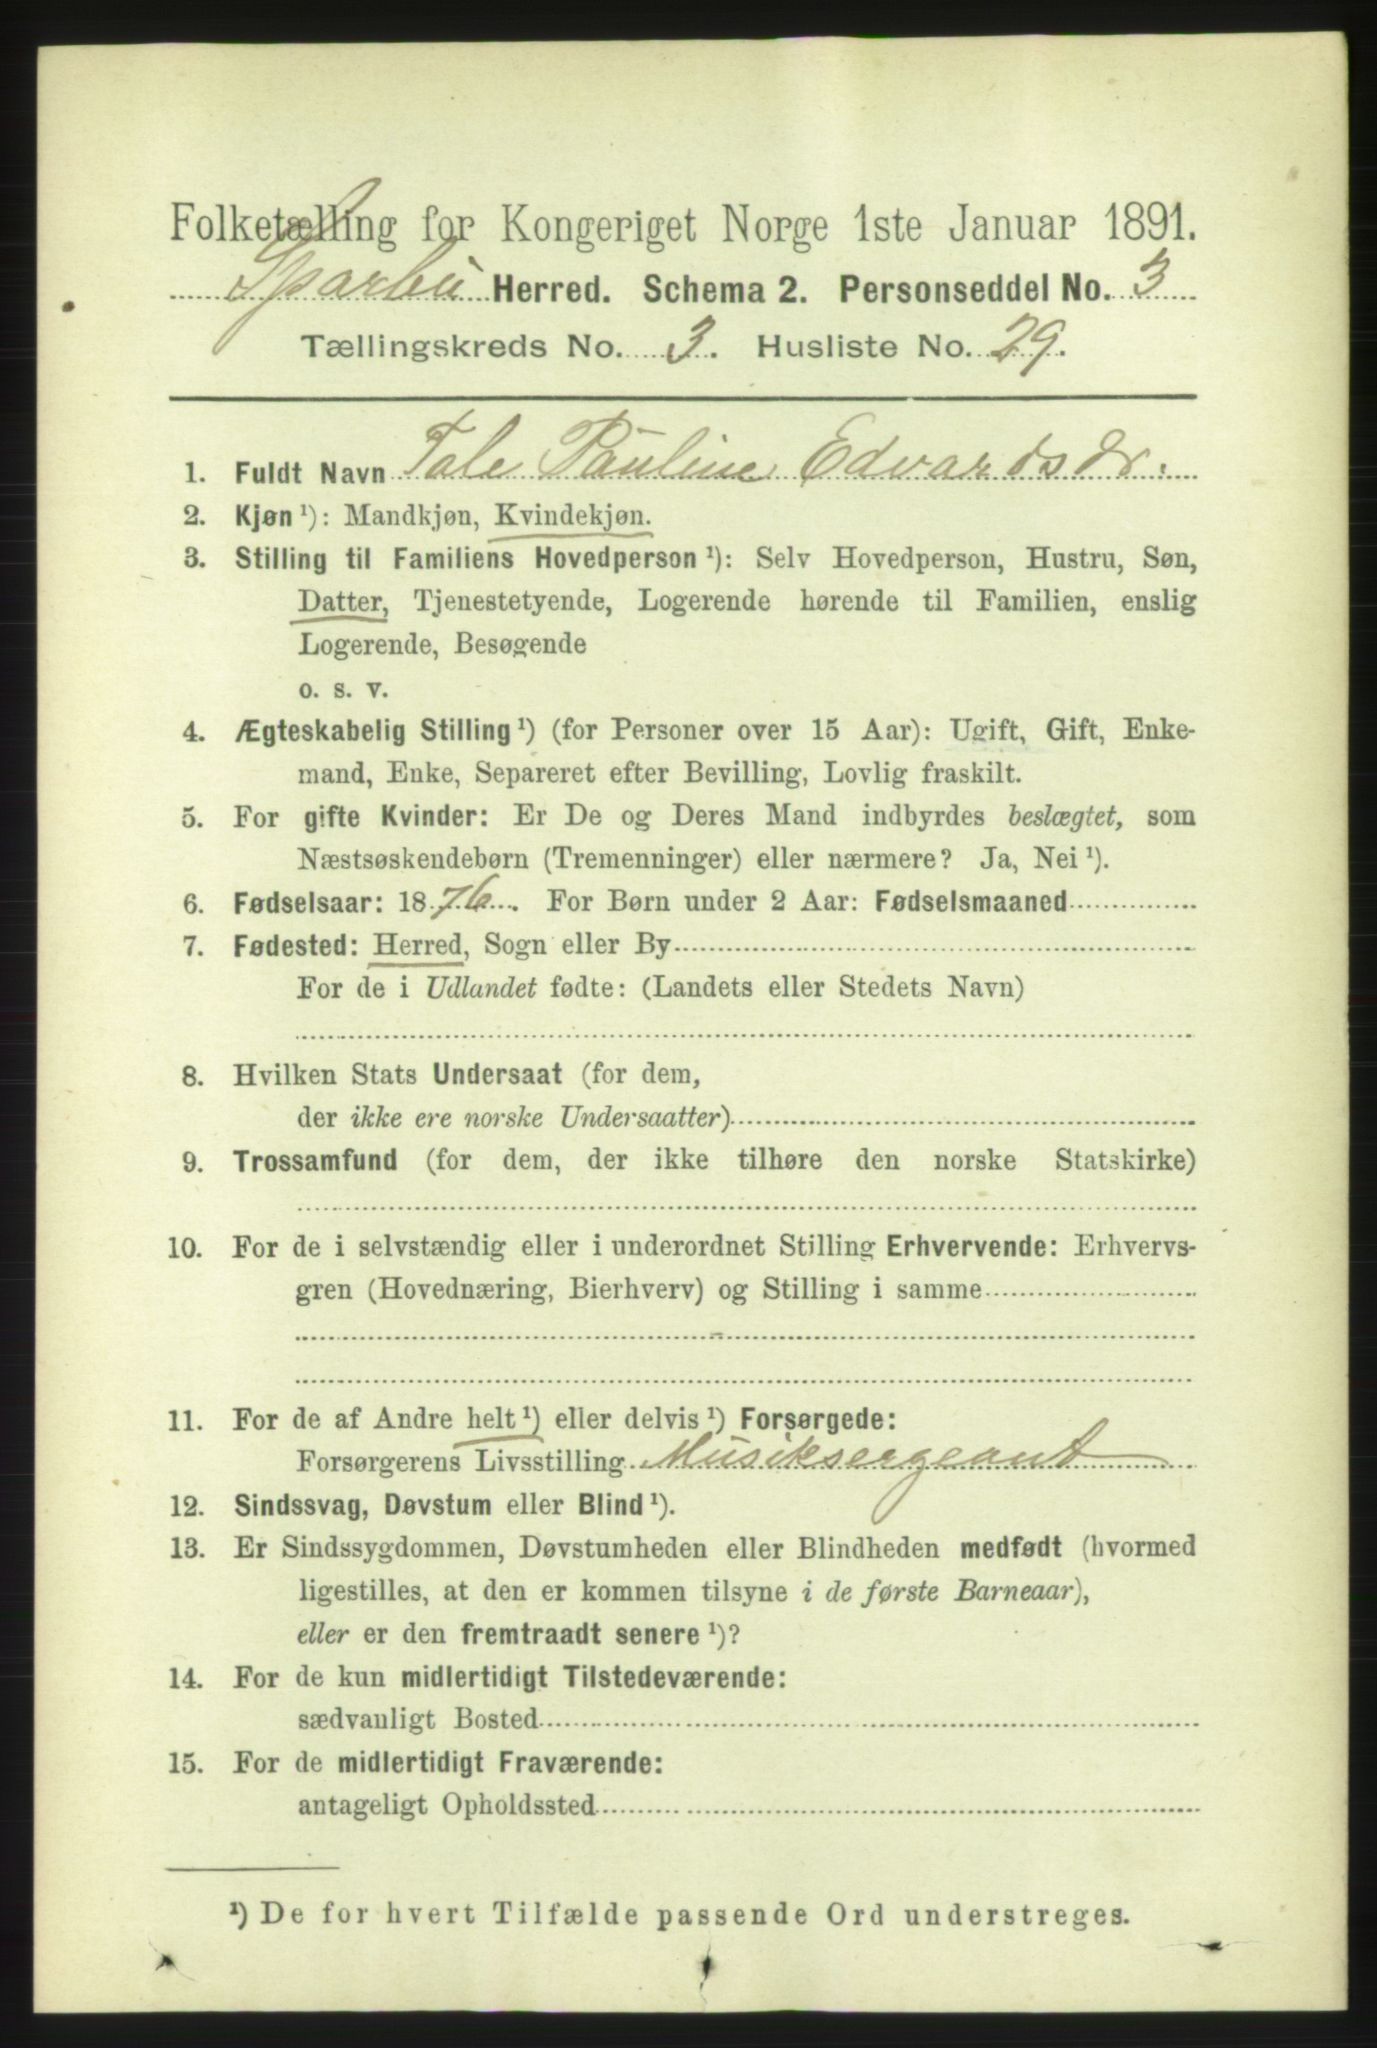 Folketælling for Kongeriget Norge 1ste Januar 1891.
Sparbu Herred. Schema 2. Personseddel No. 3
Tællingskreds No. 3. Husliste No. 29.
1. Fuldt Navn Tale Pauline Edvardsdr.
2. Kjøn ¹): Mandkjøn, Kvindekjøn.
3. Stilling til Familiens Hovedperson ¹): Selv Hovedperson, Hustru, Søn,
Datter, Tjenestetyende, Logerende hørende til Familien, enslig
Logerende, Besøgende
o. s. v.
4. Ægteskabelig Stilling ¹) (for Personer over 15 Aar): Ugift, Gift, Enke-
mand, Enke, Separeret efter Bevilling, Lovlig fraskilt.
5. For gifte Kvinder: Er De og Deres Mand indbyrdes beslægtet, som
Næstsøskendebørn (Tremenninger) eller nærmere? Ja, Nei ¹).
6. Fødselsaar: 1876. For Børn under 2 Aar: Fødselsmaaned
7. Fødested: Herred, Sogn eller By
For de i Udlandet fødte: (Landets eller Stedets Navn)
8. Hvilken Stats Undersaat (for dem,
der ikke ere norske Undersaatter)
9. Trossamfund (for dem, der ikke tilhøre den norske Statskirke)
10. For de i selvstændig eller i underordnet Stilling Erhvervende: Erhvervs-
gren (Hovednæring, Bierhverv) og Stilling i samme
11. For de af Andre helt ¹) eller delvis ¹) Forsørgede:
Forsørgerens Livsstilling Musiksergeant
12. Sindssvag, Døvstum eller Blind ¹).
13. Er Sindssygdommen, Døvstumheden eller Blindheden medfødt (hvormed
ligestilles, at den er kommen tilsyne i de første Barneaar),
eller er den fremtraadt senere ¹)?
14. For de kun midlertidigt Tilstedeværende:
sædvanligt Bosted
15. For de midlertidigt Fraværende:
antageligt Opholdssted
¹) De for hvert Tilfælde passende Ord understreges.